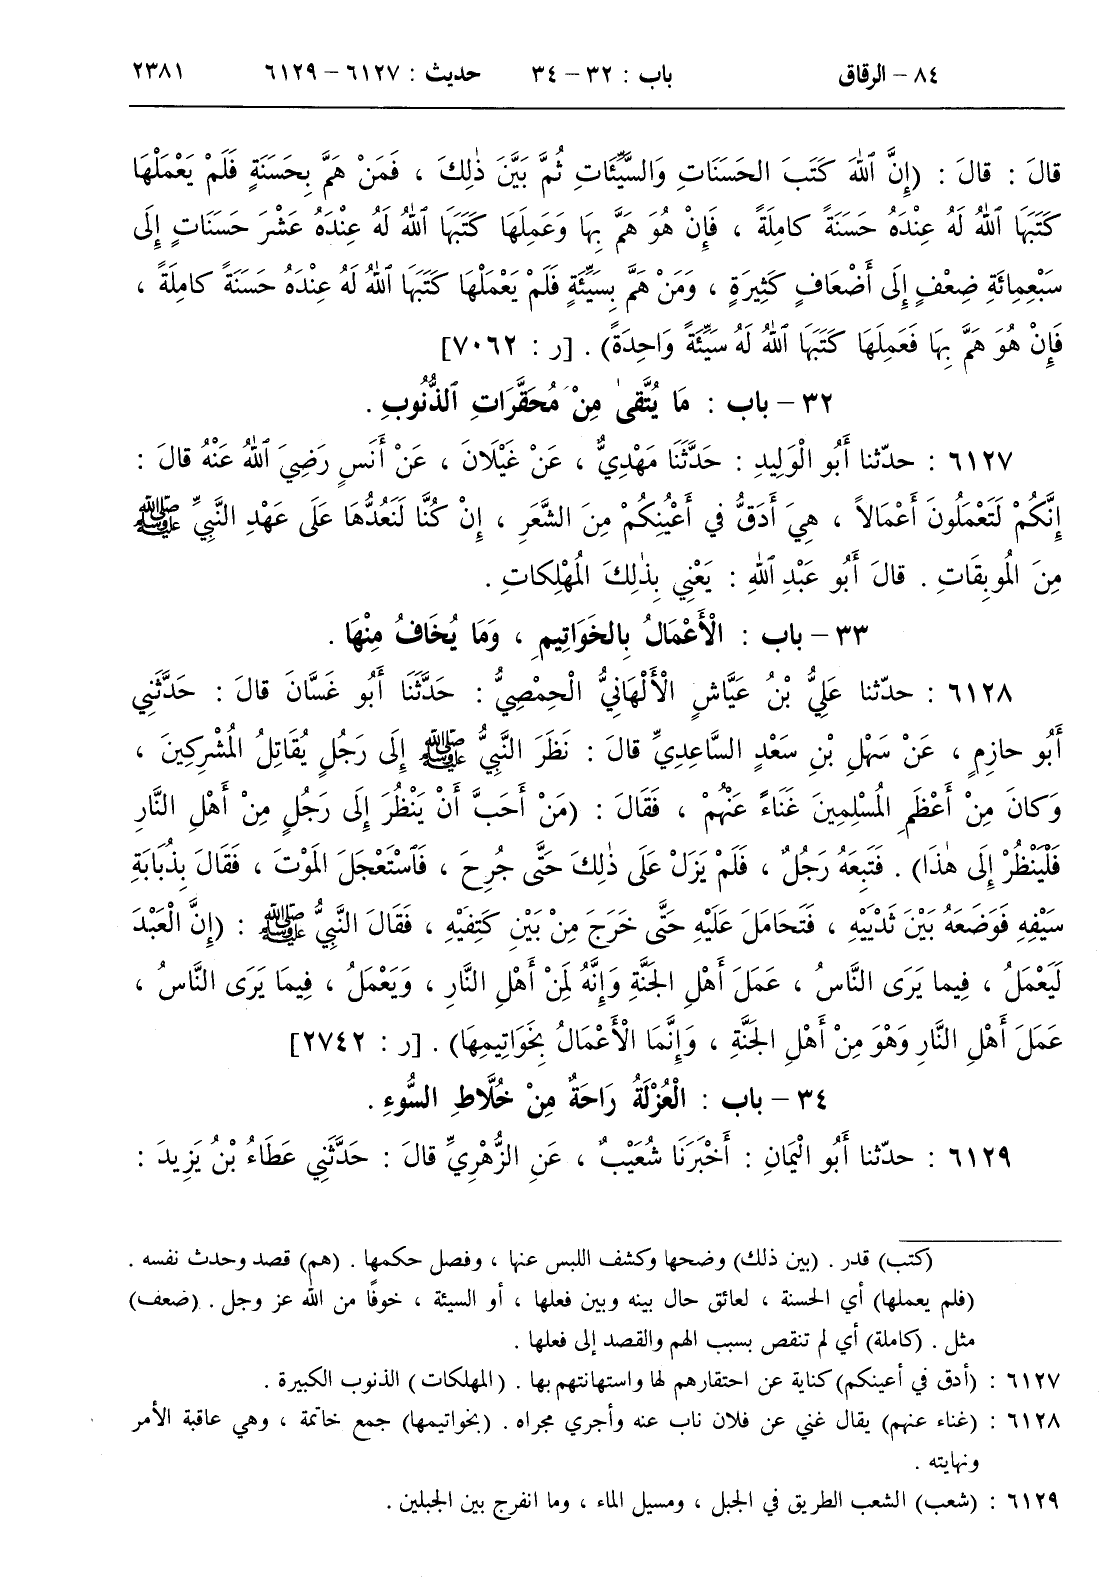 ٨٤ – الرقاق باب : ٣٢ – ٣٤ حديث : ٦١٢٧ – ٦١٢٩ ٢٣٨١
قالَ : قالَ : (إِنَّ ٱللهَ كَتَبَ الحَسَنَاتِ وَالسَّيِّئَاتِ ثُمَّ بَيَّنَ ذٰلِكَ ، فَمَنْ هَمَّ بِحَسَنَةٍ فَلَمْ يَعْمَلْهَا
كَتَبَهَا ٱللهُ لَهُ عِنْدَهُ حَسَنَةً كامِلَةً ، فَإِنْ هُوَ هَمَّ بِهَا وَعَمِلَهَا كَتَبَهَا ٱللهُ لَهُ عِنْدَهُ عَشْرَ حَسَنَاتٍ إِلَى
سَبْعِمِائَةِ ضِعْفٍ إِلَى أَضْعَافٍ كَثِيرَةٍ ، وَمَنْ هَمَّ بِسَيِّئَةٍ فَلَمْ يَعْمَلْهَا كَتَبَهَا ٱللهُ لَهُ عِنْدَهُ حَسَنَةً كامِلَةً ،
فَإِنْ هُوَ هَمَّ بِهَا فَعَمِلَهَا كَتَبَهَا ٱللهُ لَهُ سَيِّئَةً وَاحِدَةً) . [ر : ٧٠٦٢]
٣٢ – باب : مَا يُتَّقَىٰ مِنْ مُحَقَّرَاتِ ٱلذُّنُوبِ .
٦١٢٧ : حدّثنا أَبُو الْوَلِيدِ : حَدَّثَنَا مَهْدِيٌّ ، عَنْ غَيْلَانَ ، عَنْ أَنَسٍ رَضِيَ ٱللهُ عَنْهُ قالَ :
إِنَّكُمْ لَتَعْمَلُونَ أَعْمَالاً ، هِيَ أَدَقُّ في أَعْيُنِكُمْ مِنَ الشَّعَرِ ، إِنْ كُنَّا لَنَعُدُّهَا عَلَى عَهْدِ النَّبِيِّ ﷺ
مِنَ المُوبِقَاتِ . قالَ أَبُو عَبْدِ ٱللهِ : يَعْنِي بِذٰلِكَ المُهْلِكاتِ .
٣٣ – باب : الْأَعْمَالُ بِالخَوَاتِيمِ ، وَمَا يُخَافُ مِنْهَا .
٦١٢٨ : حدّثنا عَلِيُّ بْنُ عَيَّاشٍ الْأَلْهَانِيُّ الْحِمْصِيُّ : حَدَّثَنَا أَبُو غَسَّانَ قالَ : حَدَّثَنِي
أَبُو حازِمٍ ، عَنْ سَهْلِ بْنِ سَعْدٍ السَّاعِدِيِّ قالَ : نَظَرَ النَّبِيُّ ﷺ إِلَى رَجُلٍ يُقَاتِلُ المُشْرِكِينَ ،
وَكانَ مِنْ أَعْظَمِ المُسْلِمِينَ غَنَاءً عَنْهُمْ ، فَقَالَ : (مَنْ أَحَبَّ أَنْ يَنْظُرَ إِلَى رَجُلٍ مِنْ أَهْلِ النَّارِ
فَلْيَنْظُرْ إِلَى هٰذَا) . فَتَبِعَهُ رَجُلٌ ، فَلَمْ يَزَلْ عَلَى ذٰلِكَ حَتَّى جُرِحَ ، فَٱسْتَعْجَلَ المَوْتَ ، فَقَالَ بِذُبَابَةِ
سَيْفِهِ فَوَضَعَهُ بَيْنَ ثَدْيَيْهِ ، فَتَحَامَلَ عَلَيْهِ حَتَّى خَرَجَ مِنْ بَيْنِ كَتِفَيْهِ ، فَقَالَ النَّبِيُّ ﷺ : (إِنَّ الْعَبْدَ
لَيَعْمَلُ ، فِيما يَرَى النَّاسُ ، عَمَلَ أَهْلِ الجَنَّةِ وَإِنَّهُ لَمِنْ أَهْلِ النَّارِ ، وَيَعْمَلُ ، فِيمَا يَرَى النَّاسُ ،
عَمَلَ أَهْلِ النَّارِ وَهْوَ مِنْ أَهْلِ الجَنَّةِ ، وَإِنَّمَا الْأَعْمَالُ بِخَوَاتِيمِهَا) . [ر : ٢٧٤٢]
٣٤ – باب : الْعُزْلَةُ رَاحَةٌ مِنْ خُلَّاطِ السُّوءِ .
٦١٢٩ : حدّثنا أَبُو الْيَمَانِ : أَخْبَرَنَا شُعَيْبٌ ، عَنِ الزُّهْرِيِّ قالَ : حَدَّثَنِي عَطَاءُ بْنُ يَزِيدَ :
(كتب) قدر . (بين ذلك) وضحها وكشف اللبس عنها ، وفصل حكمها . (هم) قصد وحدث نفسه .
(فلم يعملها) أي الحسنة ، لعائق حال بينه وبين فعلها ، أو السيئة ، خوفًا من الله عز وجل . (ضعف)
مثل . (كاملة) أي لم تنقص بسبب الهم والقصد إلى فعلها .
٦١٢٧ : (أدق في أعينكم) كناية عن احتقارهم لها واستهانتهم بها . (المهلكات) الذنوب الكبيرة .
٦١٢٨ : (غناء عنهم) يقال غني عن فلان ناب عنه وأجري مجراه . (بخواتيمها) جمع خاتمة ، وهي عاقبة الأمر
ونهايته .
٦١٢٩ : (شعب) الشعب الطريق في الجبل ، ومسيل الماء ، وما انفرج بين الجبلين .